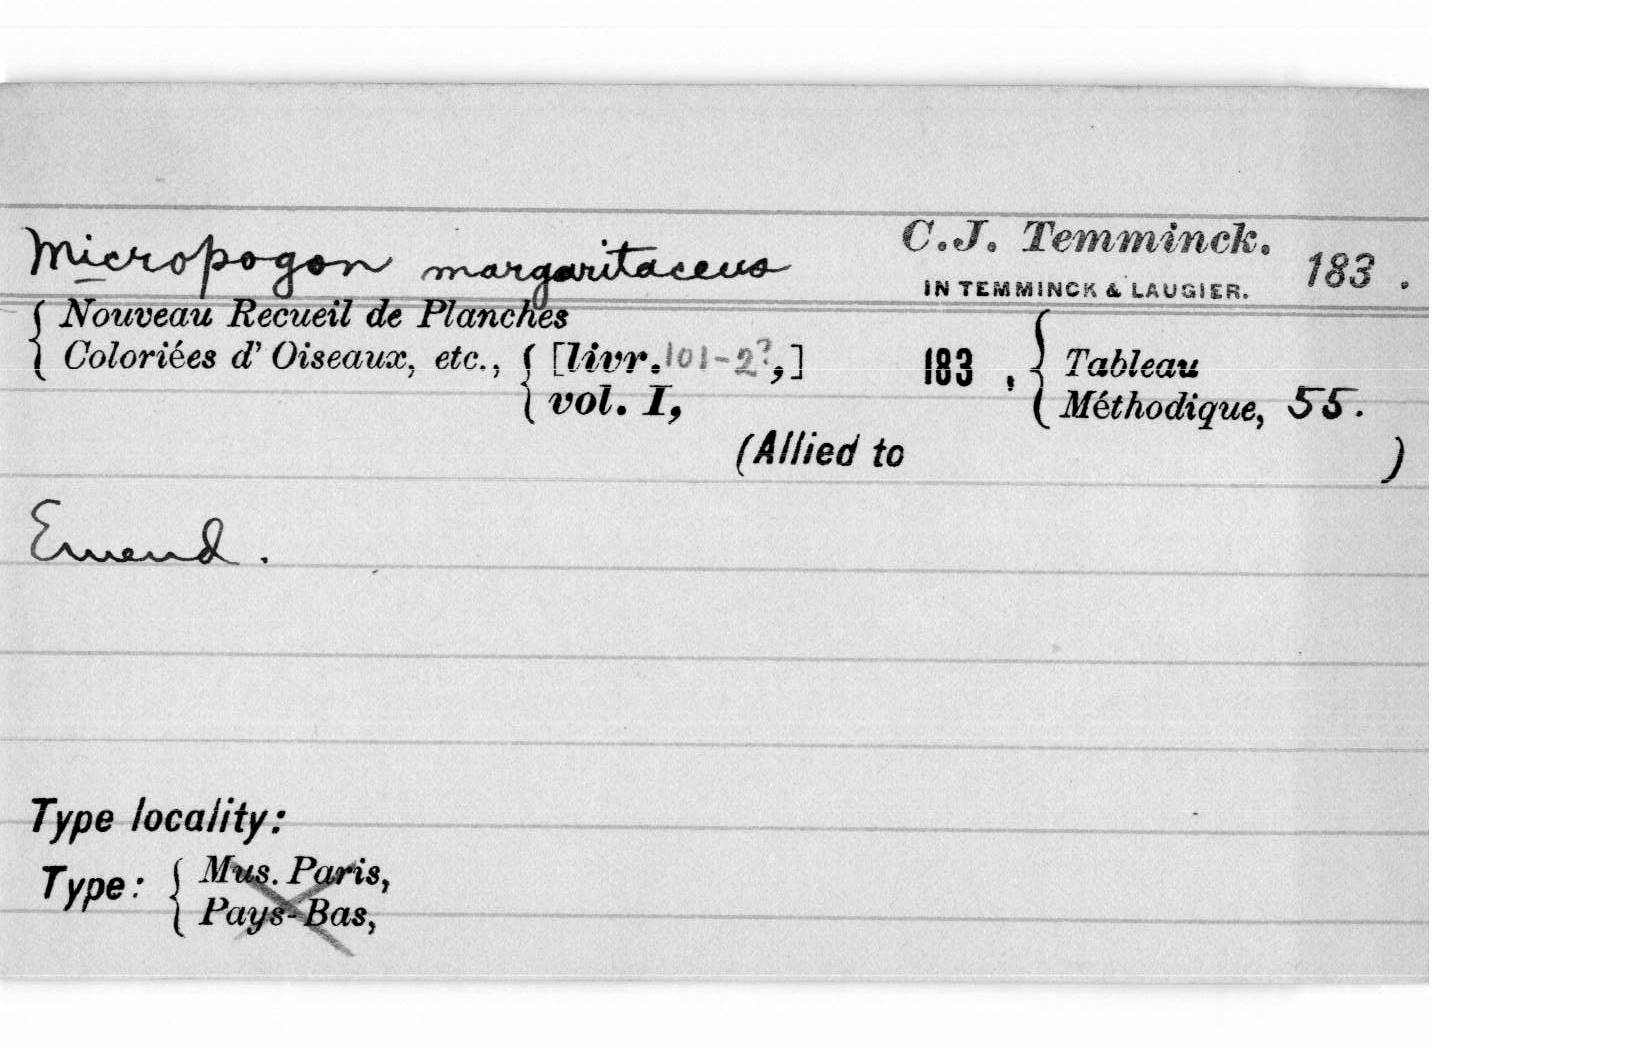 Micropogon margaritaceus C.J. Temminck. 183.
IN TEMMINCK & LAUGIER.
Nouveau Recueil de Planches
Coloriées d' Oiseaux, etc., [livr. 101-2?,] 183, Tableau
vol. I, Méthodique, 55.
(Allied to )
Emend.
Type locality:
Type: Mus. Paris,
Pays-Bas,